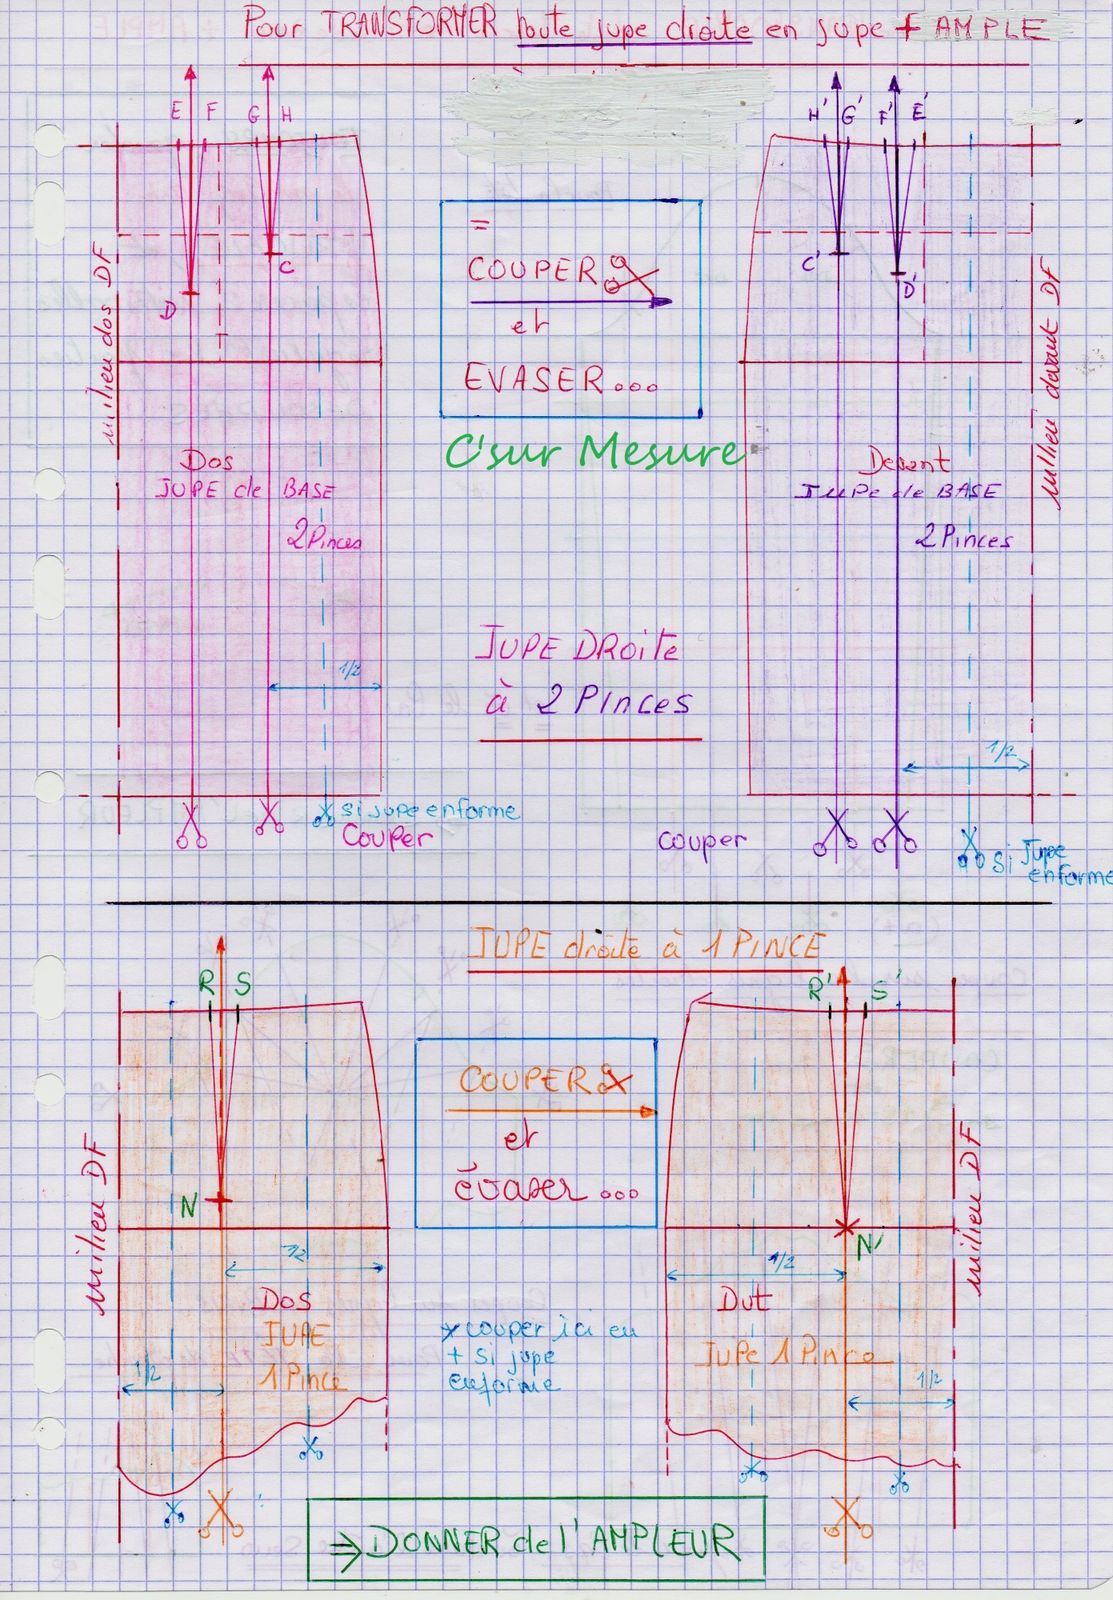 Pour TRANSFORMER toute jupe droite en jupe + AMPLE
E F G H
H' G' F' E'
=
COUPER
et
EVASER...
C'sur Mesure
C
D
C'
D'
milieu dos DF
milieu devant DF
Dos
JUPE de BASE
2 Pinces
Devant
JUPe de BASE
2 Pinces
JUPE DROite
à 2 PINCES
1/2
1/2
si jupe enforme
Couper
couper
Si Jupe
enforme
JUPE droite à 1 PINCE
R S
R' S'
COUPER
et
évaser...
N
N'
milieu DF
milieu DF
1/2
1/2
Dos
JUPE
1 Pince
1/2
Dvt
JuPe 1 Pince
1/2
* couper ici en
+ si jupe
enforme
⇒ DONNER de l'AMPLEUR